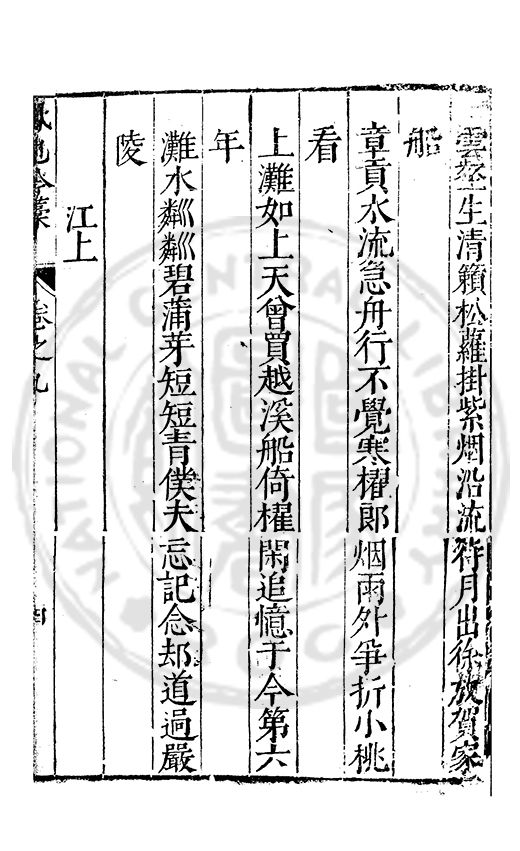 雲壑生清籟松蘿掛紫烟沿流待月出徐放賀家
船
章貢水流急舟行不覺寒櫂郎烟雨外爭折小桃
看
上灘如上天曾買越溪船倚櫂閑追憶于今第六
年
灘水粼粼碧蒲芽短短青僕夫忘記念却道過嚴
陵
江上
卷之九
NATIONAL CENTRAL LIBRARY